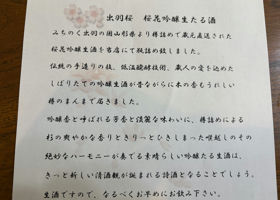 出羽桜　桜花吟醸生たる酒
みちのく出羽の国山形県より樽詰めで蔵元直送された
桜花吟醸生酒を当店にて瓶詰め致しました。
伝統の手造りの技、低温醗酵技術、蔵人の愛を込めた
しぼりたての吟醸生酒が昔ながらに木の香もうれしい
樽のまんまで届きました。
吟醸香と呼ばれる芳香と淡麗な味わいに、樽詰めによる
杉の爽やかな香りときりっとひきしまった喉越しのその
絶妙なハーモニーが奏でる素晴らしい吟醸たる生酒は、
きっと新しい清酒観が誕まれる詩酒となることでしょう。
生酒ですので、なるべくお早めにお飲み下さい。